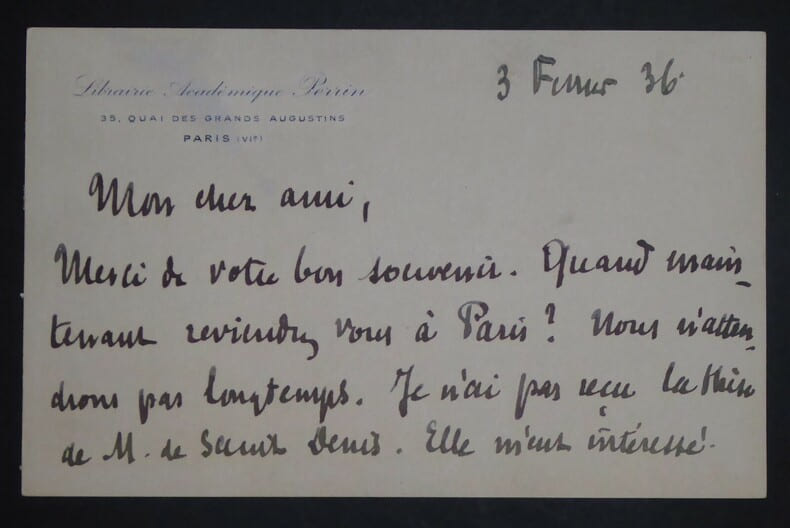 Librairie Académique Perrin
35, QUAI DES GRANDS AUGUSTINS
PARIS (VIᵉ)
3 Fevrier 36.
Mon cher ami,
Merci de votre bon souvenir. Quand main-
tenant reviendrez vous à Paris ? Nous n'atten-
drons pas longtemps. Je n'ai pas reçu la thèse
de M. de Saint Denis. Elle m'eut intéressé.